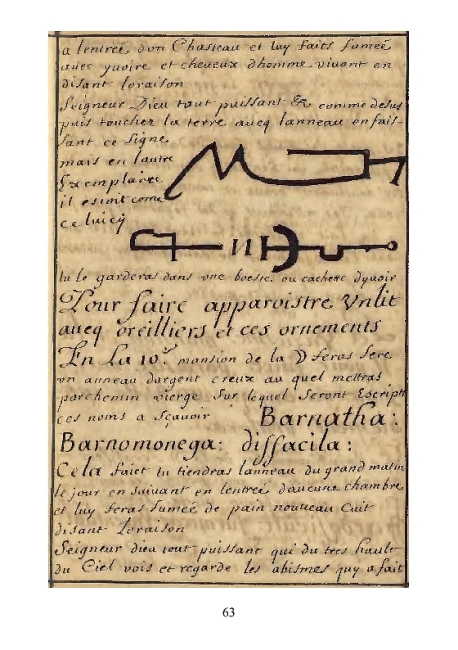 a lentreé dun Chasteau et luy faits fumeé
avec yvoire et cheveux dhomme vivant en
disant loraison
Seigneur Dieu tout puissant &c comme desus
puis touchez la terre avecq lanneau en fais-
sant ce signe
mais en lautre
Exemplaire
il es comme
celuicy
tu le garderas dans une boeste ou cachette dyvoir
Pour faire apparoistre Unlit
avecq oreilliers et ces ornements
En La 10e mansion de la ☽ feras fere
un anneau dargent creux au quel mettras
parchemin vierge sur lequel seront Escripts
ces noms a sçavoir Barnatha:
Barnomonega: dissacila:
Cela faict tu tiendras lanneau du grand matin
le jour en suivant en lentreé daucune chambre
et luy feras fumeé de pain nouveau cuit
disant Loraison
Seigneur dieu tout puissant qui du tres hault
du Ciel vois et regarde les abismes quy a fait
63